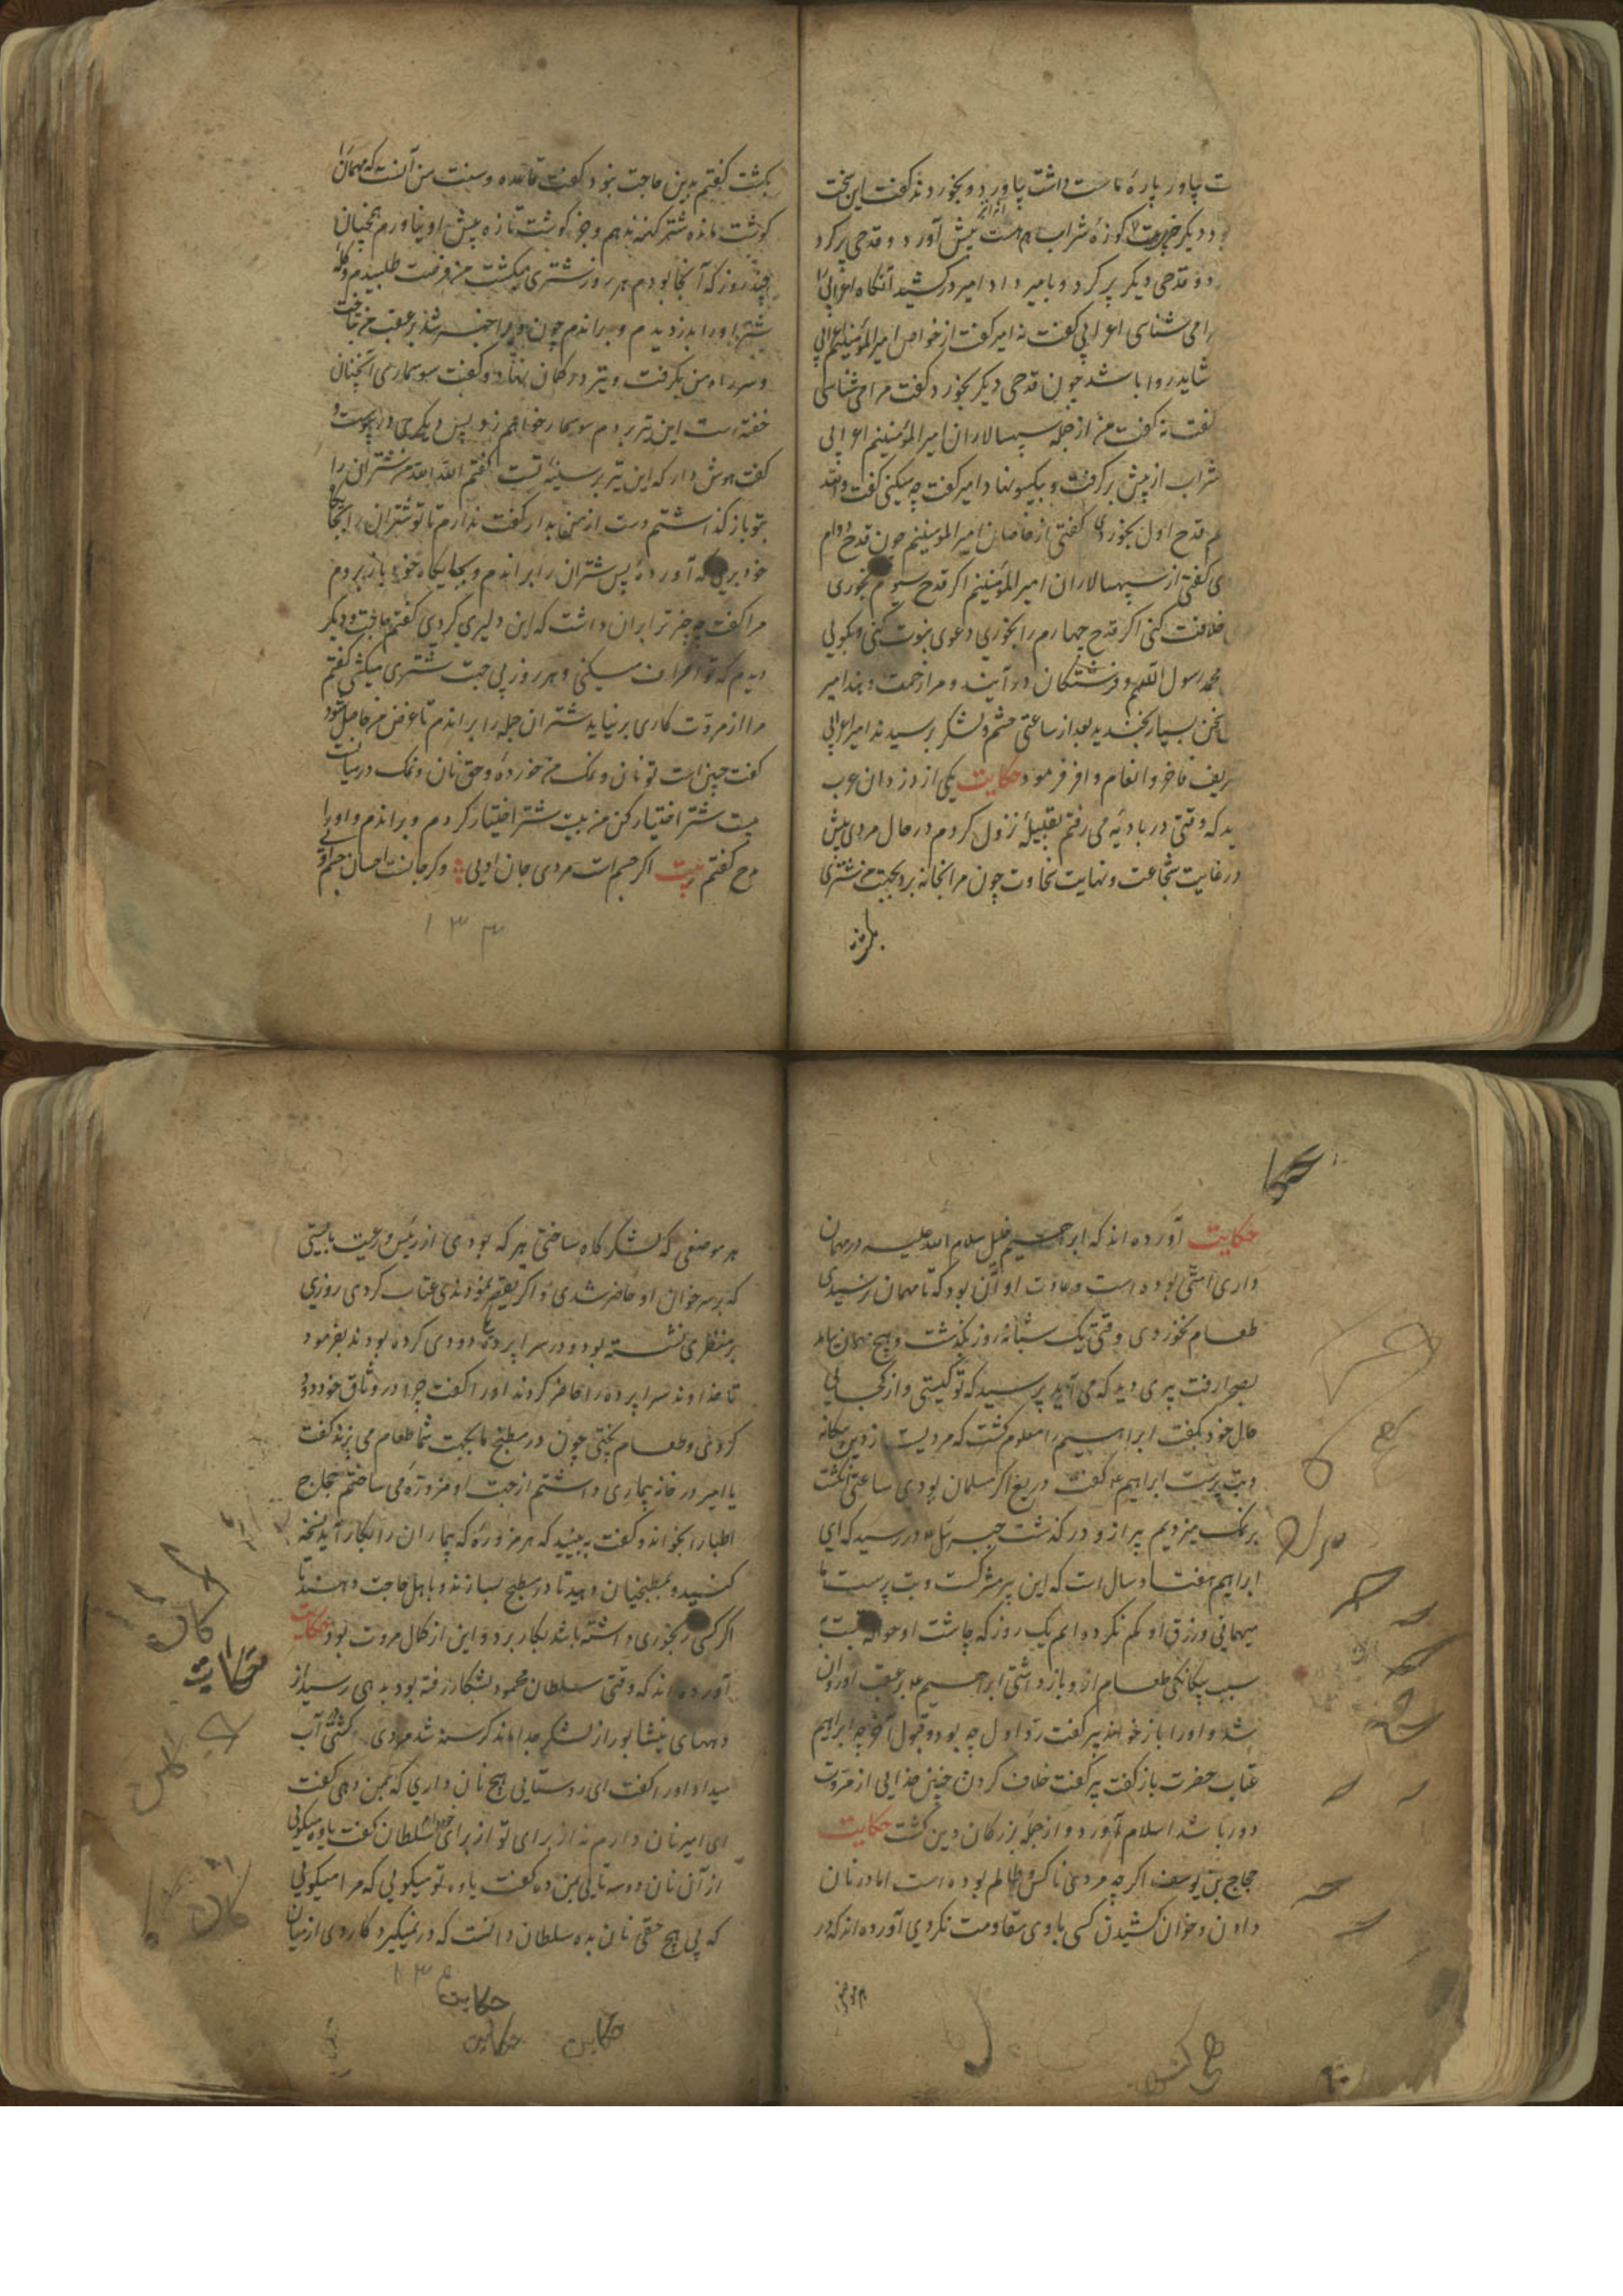 ت بیاور پارهٔ ماست داشت بیاورد و بخوردند گفت این سخت
بود دیگر چیزی هست کوزهٔ شراب هم هست پیش آورد و قدحی پر کرد
و قدحی دیگر پر کرد و بامیر داد امیر درکشید آنگاه اعرابی را
را می شناسی اعرابی گفت نه امیر گفت از خواص امیر المؤمنینم اعرابی
شاید روا باشد چون قدحی دیگر بخورد گفت مرا می شناسی
گفت نه گفت من از جمله سپهسالاران امیر المؤمنینم اعرابی
شراب از پیش برگرفت و بیکسو نهاد امیر گفت چه میکنی گفت والله
قدح اول بخوردی گفتی از خاصان امیر المومنینم چون قدح دوام
ی گفتی از سپهسالاران امیر المؤمنینم اگر قدح سیوم بخوری
خلافت کنی اگر قدح چهارم را بخوری دعوی نبوت کنی و بگویی
محمد رسول اللهم و فرشتگان درآیند و مرا زحمت دهند امیر
سخن بسیار بخندید بعد از ساعتی حشم و لشکر برسیدند امیر اعرابی
تشریف فاخر و انعام وافر فرمود حکایت یکی از دزدان عرب
ید که وقتی در بادیه می رفتم بقبیلهٔ نزول کردم در حال مردی پیش
در غایت شجاعت و نهایت سخاوت چون مرا بخانه برد بجهت من شتری
بکشت
بکشت گفتم بدین حاجت نبود گفت قاعده و سنت من آنست که مهمان را
گوشت مانده شتر کهنه ندهم و جز گوشت تازه پیش او نیاورم همچنان
چند روز که آنجا بودم هر روز شتری میکشت من فرصت طلبیدم و گله
شتر او را بدزدیدم و براندم چون ویرا خبر شد بر عقب من بتاخت
و سر راه من بگرفت و تیر در کمان نهاد و گفت سوسماری آنچنان
خفته است این تیر بر دم سوسمار خواهم زد پس دیگری در پیوست و
گفت هوش دار که این تیر بر سینهٔ تست گفتم الله الله من شتران را
بتو باز گذاشتم دست از من بدار گفت ندارم تا تو شتران را بجای
خود بری که آوردهٔ پس شتران را براندم و بجایگاه خود باز بردم
مرا گفت چه چیز ترا بران داشت که این دلیری کردی گفتم حاجت و دیگر
دیدم که تو اسراف میکنی و هر روز بی جهت شتری میکشی گفتم
مرا از مروت کاری برنیاید شتران جمله را براندم تا غرض من حاصل شود
گفت چنین است تو نان و نمک من خوردهٔ و حق نان و نمک در میانست
بیست شتر اختیار کن من بیست شتر اختیار کردم و براندم و او را
مدح گفتم بیت اگر جسم است مردی جان اویی وگر جانست احسان جسم اویی
۱۳۴
حکایت آورده اند که ابراهیم خلیل سلام الله علیه در مهمان
داری امتی بوده است و عادت او آن بود که تا مهمان نرسیدی
طعام نخوردی وقتی یک شبانه روز بگذشت و هیچ مهمان نیامد
بصحرا رفت پیری دید که می آید پرسید که تو کیستی و از کجایی
حال خود بگفت ابراهیم را معلوم گشت که مردیست از دین بیگانه
و بت پرست ابراهیم گفت دریغ اگر مسلمان بودی ساعتی انگشت
بر نمک میزدیم پیر ازو درگذشت جبرئیل در رسید که ای
ابراهیم هفتاد سال است که این پیر مشرکست و بت پرست ما
میهمانی و رزق او کم نکرده ایم یک روز که چاشت او حواله بتست
سبب بیگانگی طعام ازو باز داشتی ابراهیم بر عقب او روان
شد و او را باز خواند پیر گفت رد اول چه بود و قبول آخر چه ابراهیم
عتاب حضرت باز گفت پیر گفت خلاف کردن چنین خدایی از مروت
دور باشد اسلام آورد و از جملهٔ بزرگان دین گشت حکایت
حجاج بن یوسف اگر چه مردی ناکس و ظالم بوده است اما در نان
دادن و خوان کشیدن کسی با وی مقاومت نکردی آورده اند که در
هر موضعی
هر موضعی که لشکرگاه ساختی هر که بودی از رئیس و رعیت بایستی
که بر سر خوان او حاضر شدی و اگر تقصیر نمودندی عتاب کردی روزی
بر منظری نشسته بود و در سراپردهٔ دودی کرده بودند بفرمود
تا خداوند سراپرده را حاضر کردند او را گفت چرا در وثاق خود دود
کردی و طعام پختی چون در مطبخ ما بجهت شما طعام می پزند گفت
یا امیر در خانه بیماری داشتم از جهت او مزوره می ساختم حجاج
اطبا را بخواند و گفت ببینید که هر مزوره که بیماران را بکار آید نسخه
کنید و بمطبخیان دهید تا در مطبخ بسازند و باهل حاجت دهند تا
اگر کسی رنجوری داشته باشد بکار برد و این از کمال مروت بود حکایت
آورده اند که وقتی سلطان محمود بشکار رفته بود بدهی رسید از
دههای نیشابور از لشکر جدا ماند گرسنه شد مردی کشت را آب
میداد او را گفت ای روستایی هیچ نان داری که بمن دهی گفت
ای امیر نان دارم نه از برای تو از برای خود دارم سلطان گفت یاوه میگویی
از آن نان دو سه تایی بمن ده گفت یاوه تو میگویی که مرا میگویی
که بی هیچ حقی نان بده سلطان دانست که در نمیگیرد کاردی از میان
۱۳۵
حکایت
حکایت حکایت
حکایت